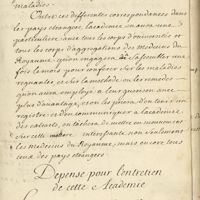 maladies.
Outre ces differentes correspondances dans
les pays etrangers, l'academie en aura une
particuliere avec tous les corps d'université et
tous les corps d'aggregations des medecins du
Royaume, qu'on engagera a s'assembler une
fois le mois pour conferer sur les maladies
regnantes, et sur la methode et les remedes
qu'on aura employé a leur guerison avec
plus d'avantage, et on les priera d'en tenir un
registre et d'en communiquer a l'academie
des extraits, on tachera de mettre en mouvement
sur cette matiere interessante non seulement
les medecins du Royaume, mais encore tous
ceux des pays etrangers.
Depense pour l'entretien
de cette Academie